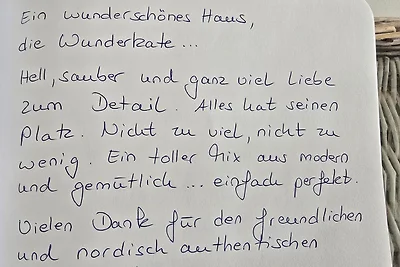 Ein wunderschönes Haus,
die Wunderkate...
Hell, sauber und ganz viel Liebe
zum Detail. Alles hat seinen
Platz. Nicht zu viel, nicht zu
wenig. Ein toller Mix aus modern
und gemütlich... einfach perfekt.
Vielen Dank für den freundlichen
und nordisch authentischen